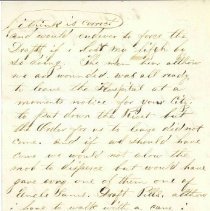 i think is correct
and would endever to force the
Draft if i lost my life by
so doing. The men here althow
we are wounded was all ready
to leave the Hospital at a
moments notice for your City
to put down the Riot but
the Order for us to leave did not
come. and if we should have
came we would not alow the
mob to disperce but would have
gave evry one of them a out of
Uncle Sam's Pills althow
i have to walk with a cane i